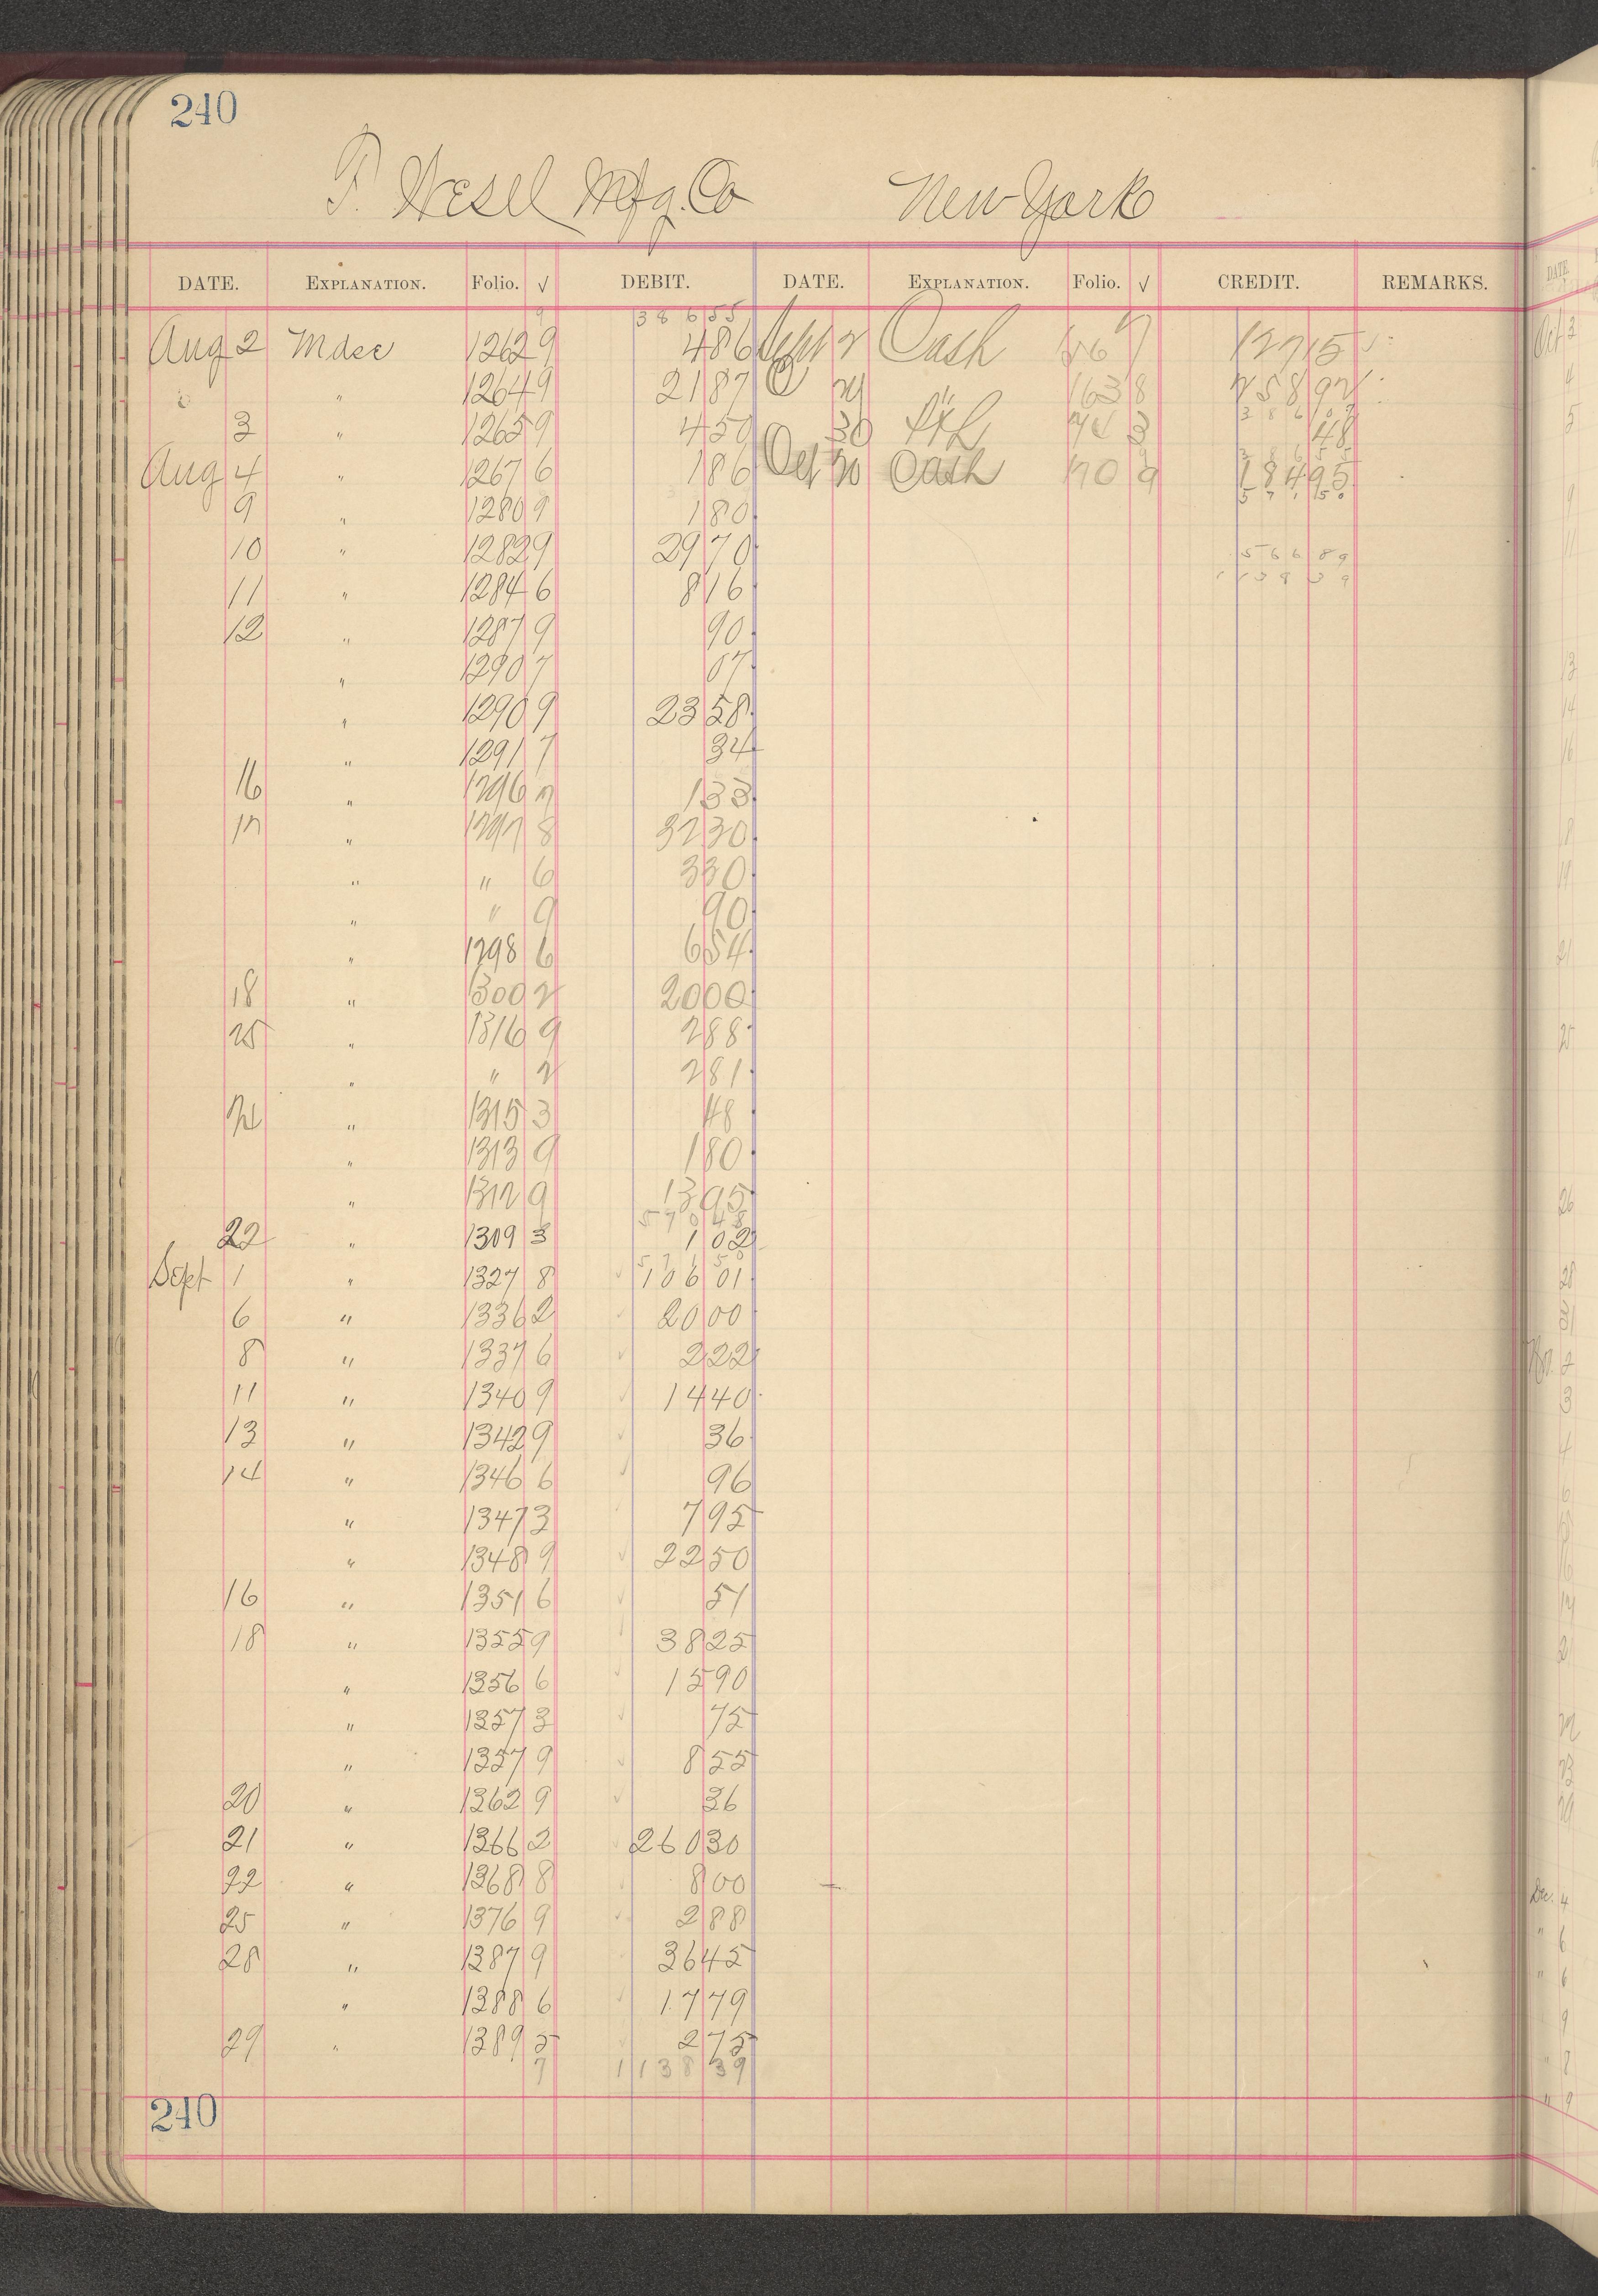 240
F. Wesel Mfg. Co New York
DATE. EXPLANATION. Folio. √ DEBIT. DATE. EXPLANATION. Folio. √ CREDIT. REMARKS.
386 55
Aug 2 Mdse 1262 9 4 86 Sept 2 Cash 7 127 15
" 1264 9 21 87 163 8 258 92
3 " 1265 9 4 50 30 3 48
Aug 4 " 1267 6 1 86 Oct 20 Cash 170 9 184 95
9 " 1280 9 1 80 571 50
10 " 1282 9 29 70 566 89
11 " 1284 6 8 16 1138 39
12 " 1287 9 90
" 1290 7 07
" 1290 9 23 58
" 1291 7 34
16 " 1296 7 1 33
17 " 1297 8 32 30
" " 6 3 30
" " 9 90
" 1298 6 6 54
18 " 1300 2 20 00
25 " 1316 9 2 88
" " 2 2 81
24 " 1315 3 48
" 1313 9 1 80
" 1312 9 13 95
570 48
22 " 1309 3 1 02
571 50
Sept 1 " 1327 8 106 01
6 " 1336 2 20 00
8 " 1337 6 2 22
11 " 1340 9 14 40
13 " 1342 9 36
14 " 1346 6 96
" 1347 3 7 95
" 1348 9 22 50
16 " 1351 6 51
18 " 1355 9 38 25
" 1356 6 15 90
" 1357 3 75
" 1357 9 8 55
20 " 1362 9 36
21 " 1366 2 260 30
22 " 1368 8 8 00
25 " 1376 9 2 88
28 " 1387 9 36 45
" 1388 6 17 79
29 " 1389 5 2 75
7 1138 39
240